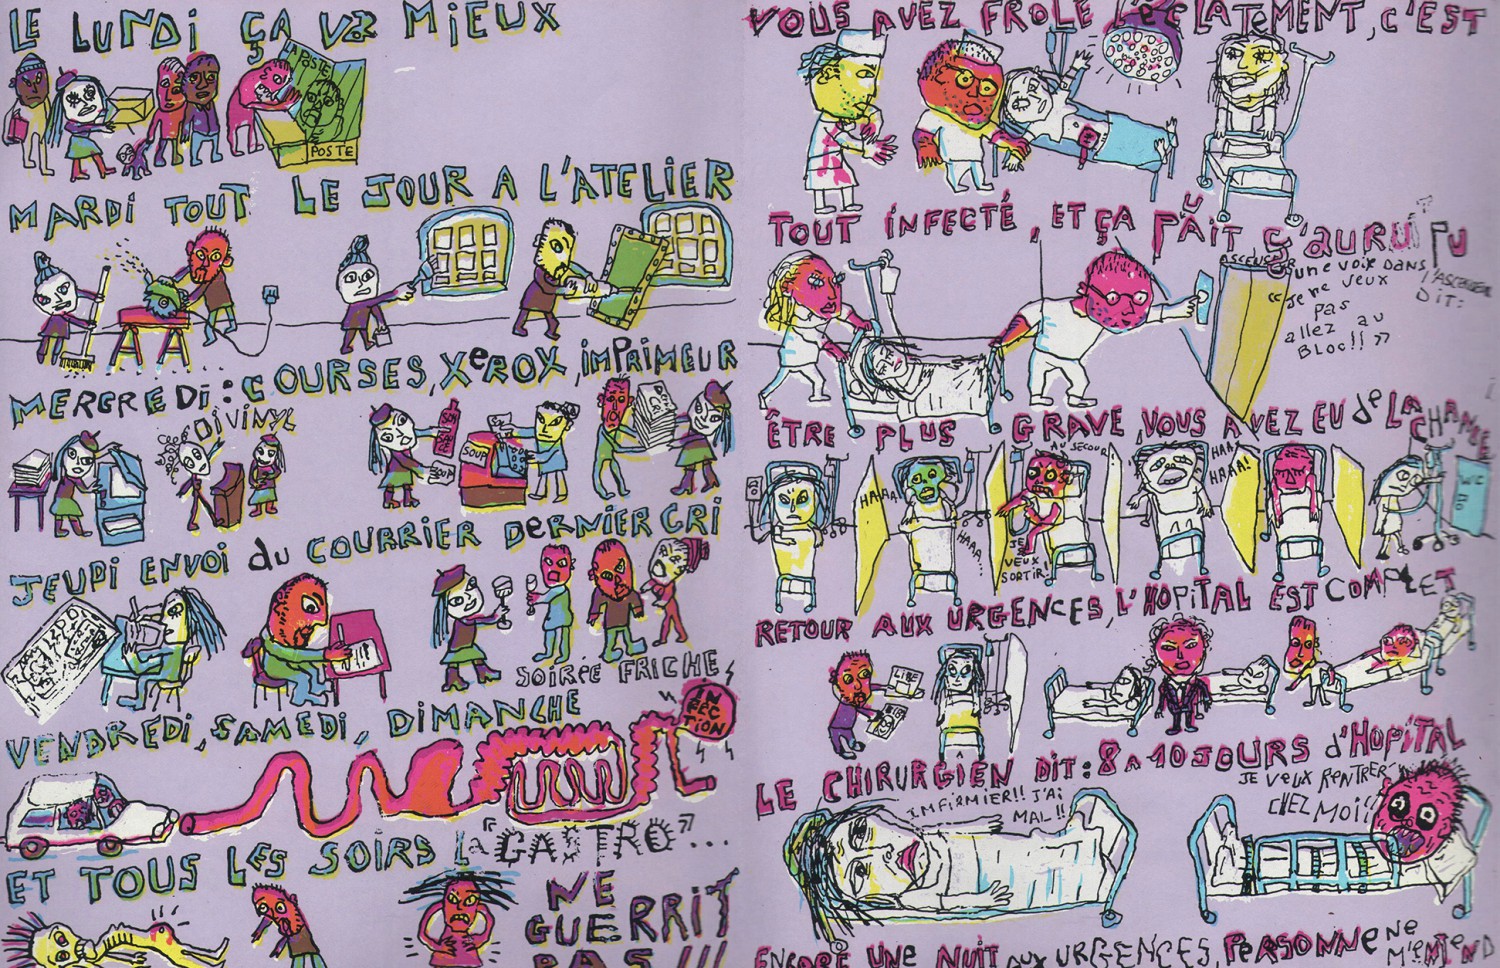 LE LUNDI ÇA VA MIEUX
POSTE
POSTE
MARDI TOUT LE JOUR A L'ATELIER
MERCREDI : COURSES, XeROX, IMPRIMEUR
DI VINYL
SOUP
SOUP
JEUDI ENVOI du COURRIER DeRNIER CRI
SOIRÉE FRICHE,
VENDREDI, SAMEDI, DIMANCHE
INFECTION
ET TOUS LES SOIRS La "GASTRO"...
NE
GUERRIT
PAS !!!
VOUS AVEZ FROLÉ L'ÉCLATEMENT, C'EST
TOUT INFECTÉ, ET ÇA PUAIT Ç'AURU PU
ASCENSEUR
une voix dans
l'ASCENSEUR
DIT:
"je ne veux
pas
allez au
BLOC!!"
ÊTRE PLUS GRAVE, VOUS AVEZ EU de LA CHANCE
AU SECOUR
HAAAA
HAAA
HAAA
HAAA!
JE
VEUX
SORTIR!
WC
RETOUR AUX URGENCES, L'HOPITAL EST COMPLET
LIBÉ
LE CHIRURGIEN DIT : 8 A 10 JOURS d'HOPITAL
INFIRMIER!! J'AI
MAL!!
JE VEUX RENTRER
CHEZ MOI!
ENCORE UNE NUIT AUX URGENCES, PERSONNE NE
M'ENTEND